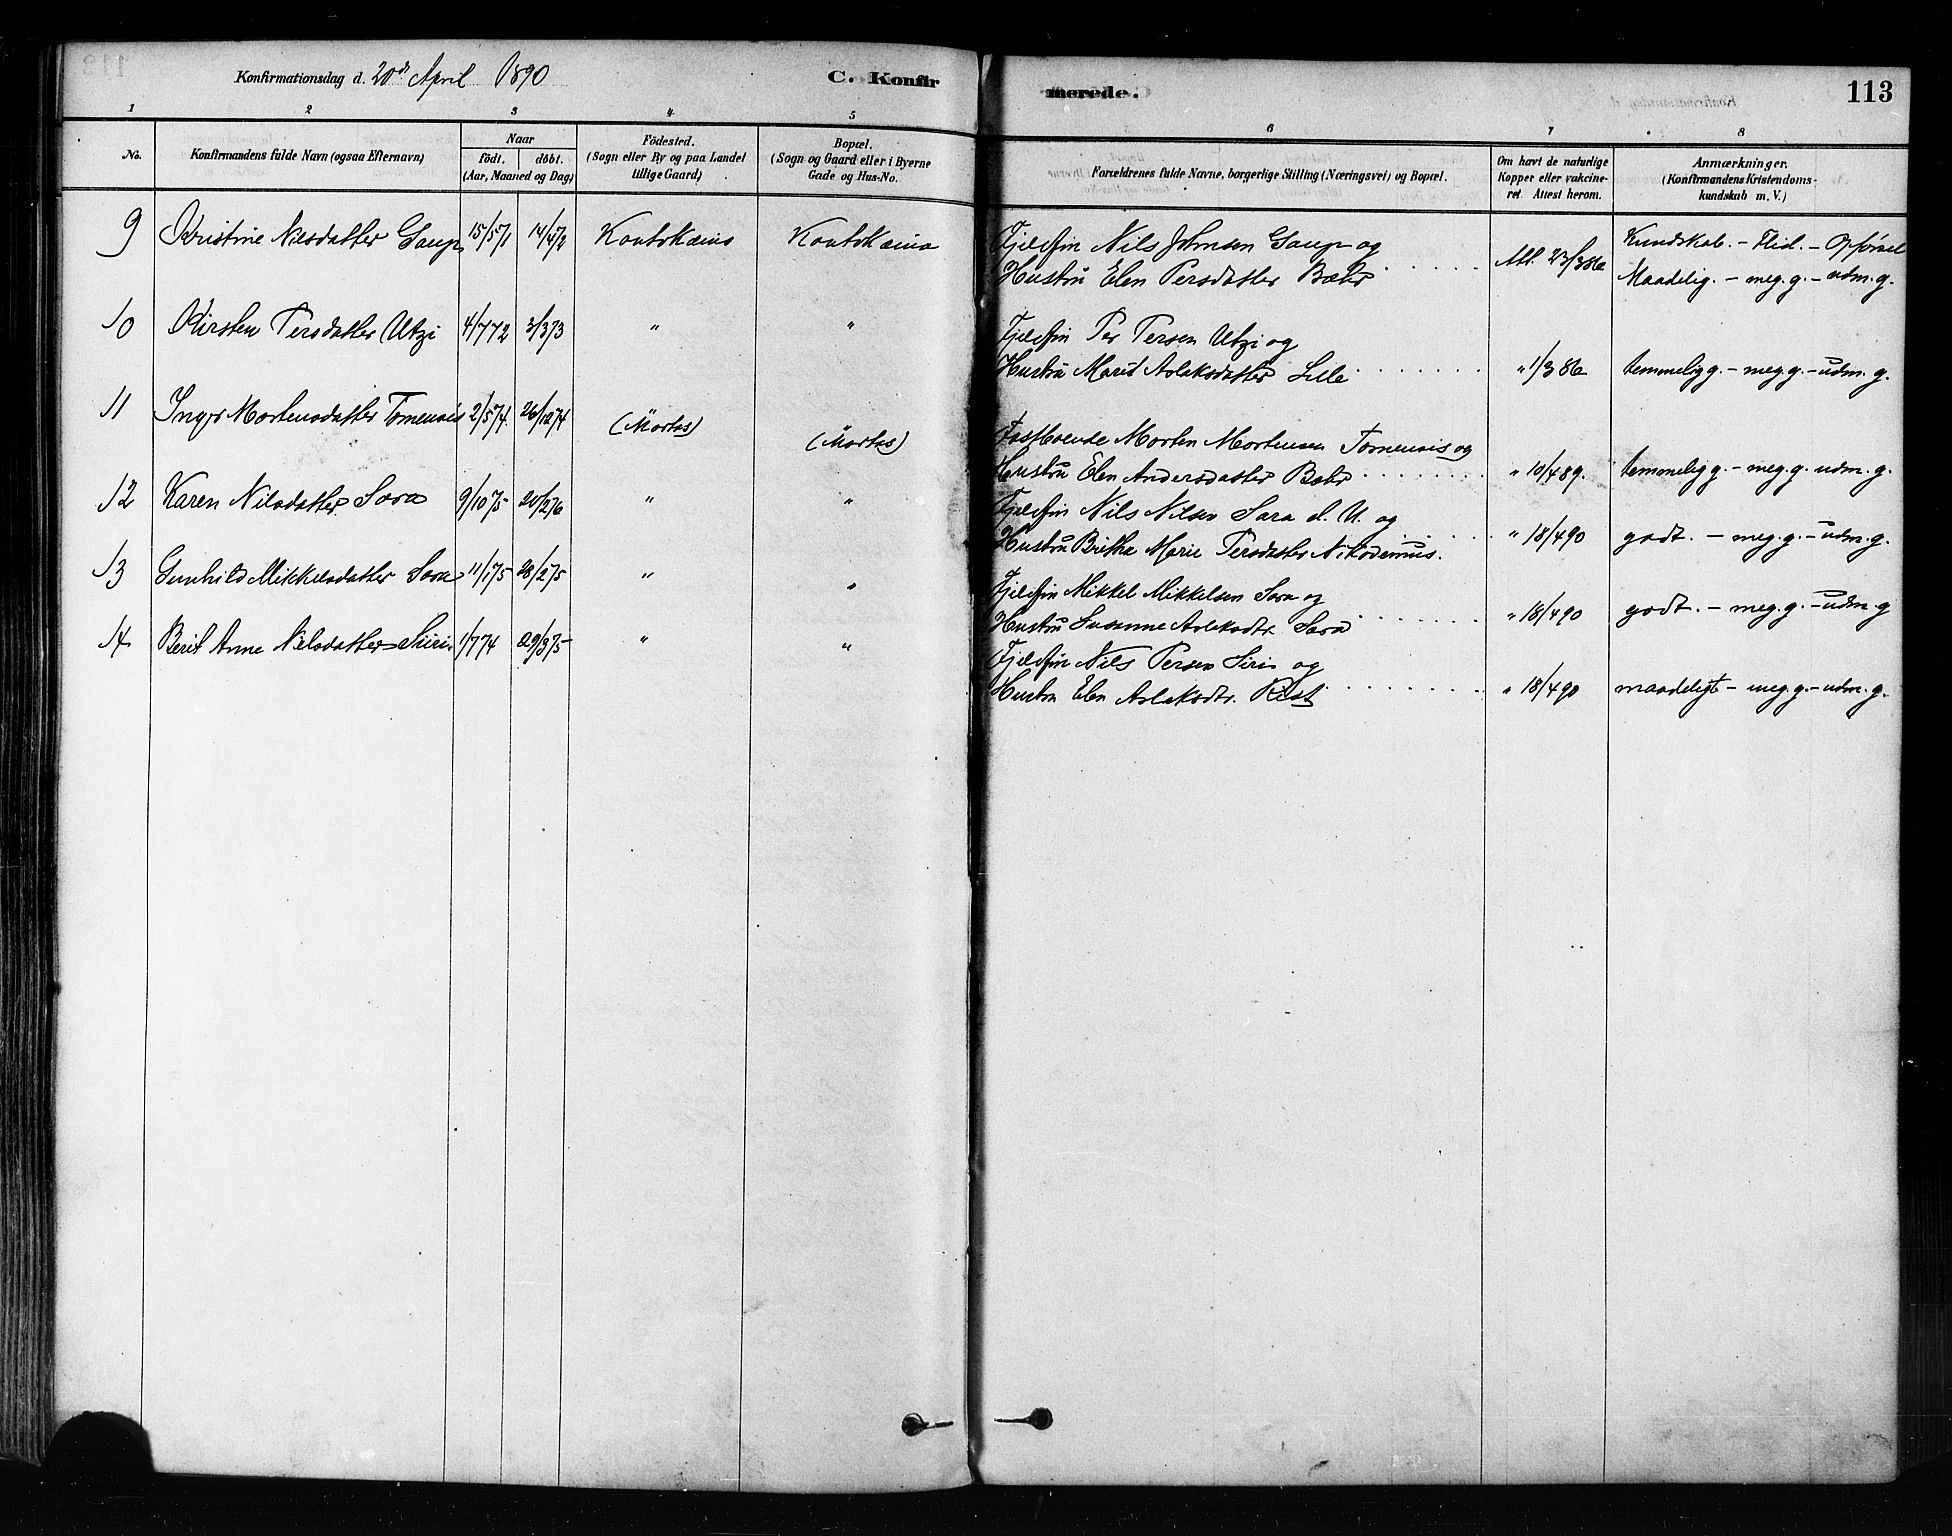 Konfirmationsdag d. 20de April 1890
C. Konfir
merede.
113
1 2 3 4 5 6 7 8
No.
Konfirmandens fulde Navn (ogsaa Efternavn)
Naar
födt. döbt.
(Aar, Maaned og Dag)
Födested.
(Sogn eller By og paa Landet
tillige Gaard)
Bopæl.
(Sogn og Gaard eller i Byerne
Gade og Hus-No.
Forældrenes fulde Navne, borgerlige Stilling (Næringsvei) og Bopæl.
Om havt de naturlige
Kopper eller vakcine-
ret. Attest herom.
Anmærkninger.
(Konfirmandens Kristendoms-
kundskab m. V.)
9 Kristine Nilsdatter Gaup 15/571 14/472 Koutokæino Koutokæino Fjeldfin Nils Johnsen Gaup og Kundskab. - Flid. - Opførsel
Hustru Elen Persdatter Bæhr Att. 23/386 Maadelig. - meg. g. - udm. g.
10 Kirsten Persdatter Utzi 4/772 3/373 " " Fjeldfin Per Persen Utzi og
Hustru Marit Aslaksdatter Lille " 1/386 temmelig g. - meg. g. - udm. g.
11 Inger Mortensdatter Tornensis 2/574. 26/1274 (Mortas) (Mortas) Fastboende Morten Mortensen Tornensis og
Hustru Elen Andersdatter Bæhr " 10/489. temmelig g. - meg. g. udm. g.
12 Karen Nilsdatter Sara 9/1075 20/276 " " Fjeldfin Nils Nilsen Sara d. U. og
Hustru Brithe Marie Persdatter Nikodemus. " 18/490 godt. - meg. g. - udm. g.
13 Gunhild Mikkelsdatter Sara 11/175 28/275 " " Fjeldfin Mikkel Mikkelsen Sara og
Hustru Susanne Aslaksdtr. Sara " 18/490 godt. - meg. g. - udm. g
14 Berit Anne Nilsdatter Siiri 1/774 29/375 " " Fjeldfin Nils Persen Siri og
Hustru Elen Aslaksdtr. Rist " 18/490 maadeligt - meg. g. - udm. g.